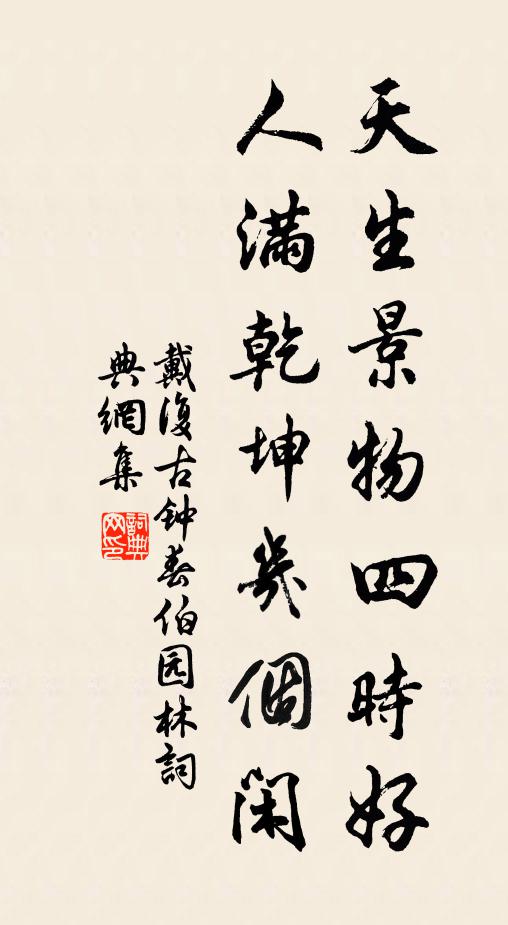 天生景物四時好
人滿乾坤幾個閑
戴復古钟春伯园林詞
典網集
詞典
网印